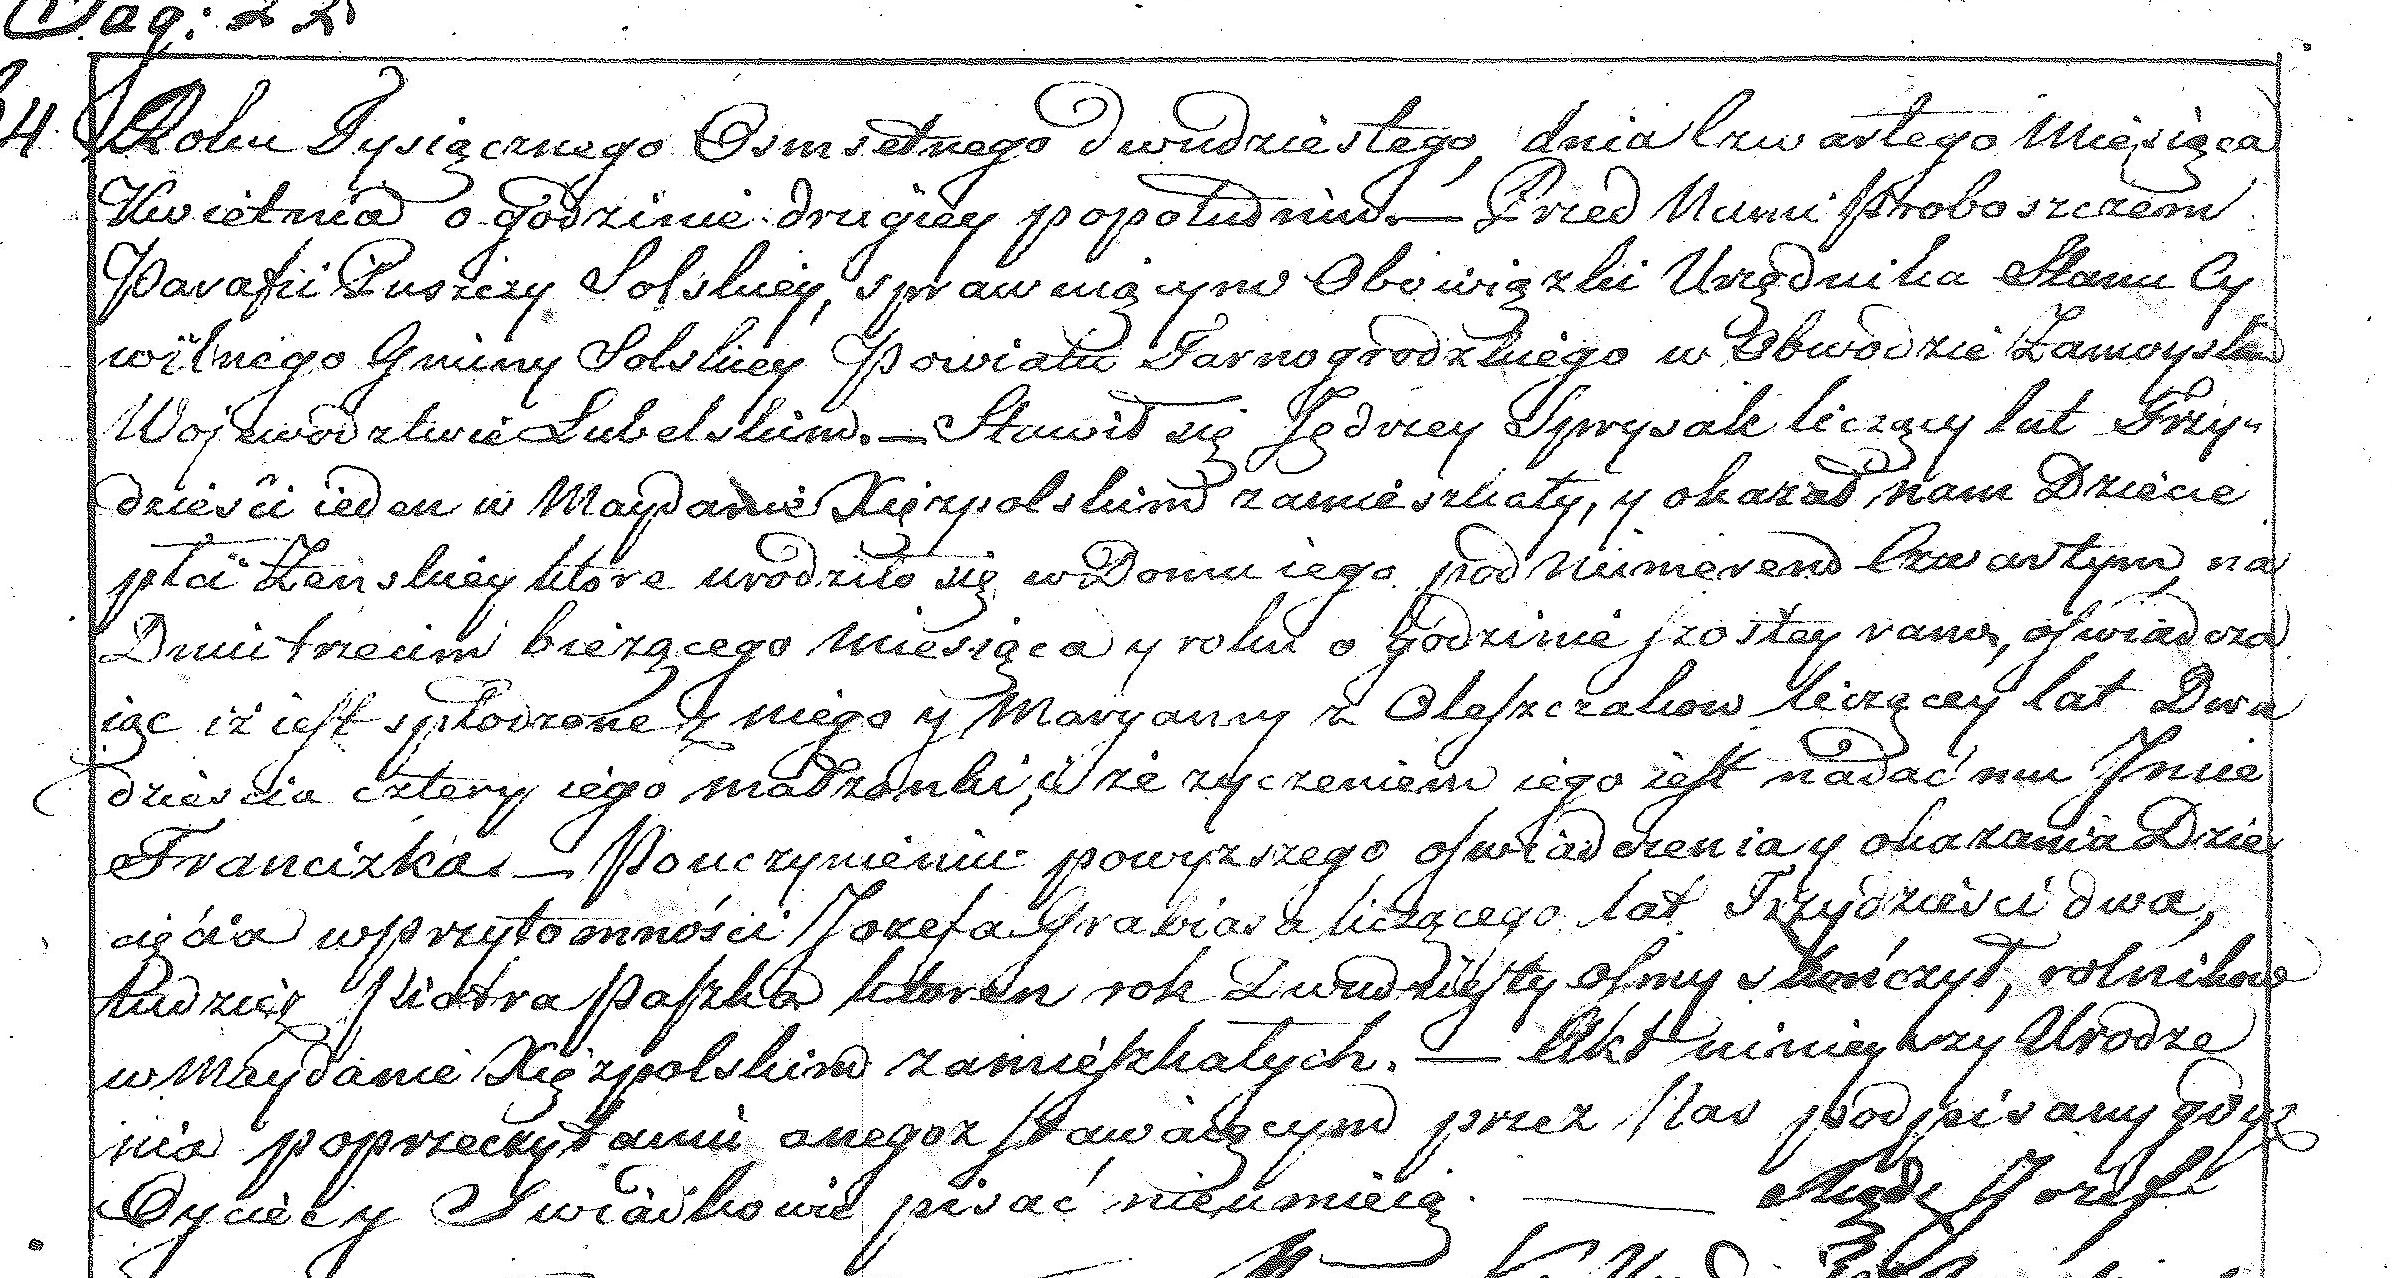 Pag: 22
34. Roku Tysiącznego Osmsetnego dwudziestego, dnia Czwartego Miesiąca
Kwietnia o godzinie drugiey popołudniu. — Przed Nami Proboszczem
Parafii Puszczy Solskiey, sprawuiącym Obowiązki Urzędnika Stanu Cy
wilnego Gminy Solskiey Powiatu Tarnogrodzkiego w Obwodzie Zamoyskim
Wojewodztwie Lubelskim. — Stawił się Jędrzey Sprysak liczący lat Trzy-
dzieści ieden w Maydanie Xięzpolskim zamieszkały, y okazał nam Dziecie
płci Zenskiey ktore urodziło się w Domu iego pod Numerem Czwartym, na
Dniu trzecim bieżącego Miesiąca y roku o godzinie szostey rano, oswiadcza
iąc iż iest spłodzone z niego y Maryanny z Oleszczakow liczącey lat Dwa
dziescia cztery iego małzonki, i że zyczeniem iego iest nadać mu Jmie
Francizka. — Po uczynieniu powyzszego oswiadczenia y okazania Dzie
cięcia w przytomności Jozefa Grabiasa liczącego lat Trzydzieści dwa,
tudzież Piotra Paszka ktoren rok Dwudziesty osmy skończył, rolnikow
w Maydanie Xięzpolskim zamieszkałych. — Akt ninieyszy Urodze
nia poprzeczytaniu onegoz stawaiącym przez Nas podpisany gdyz
Oyciec y Swiadkowie pisać nieumieią. Jozef